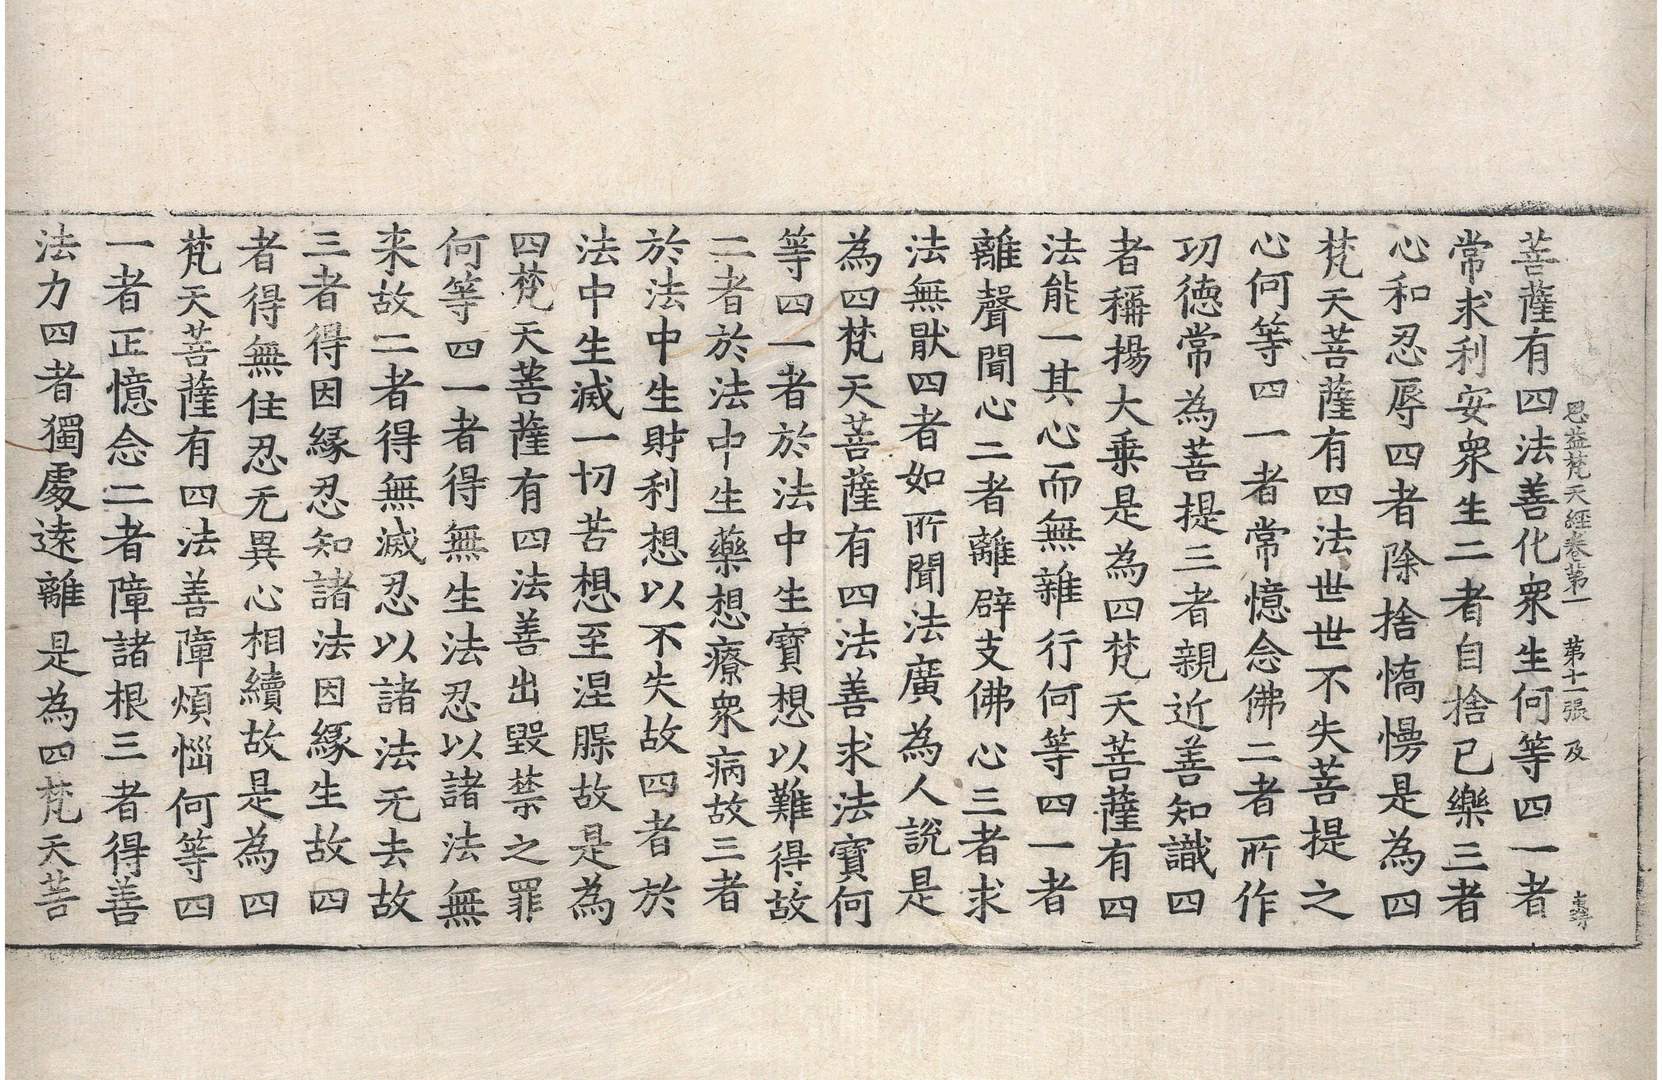 思益梵天經卷第一 第十一張 及
菩薩有四法善化衆生何等四一者
常求利安衆生二者自捨已樂三者
心和忍辱四者除捨憍慢是為四
梵天菩薩有四法世世不失菩提之
心何等四一者常憶念佛二者所作
功德常為菩提三者親近善知識四
者稱揚大乗是為四梵天菩薩有四
法能一其心而無雜行何等四一者
離聲聞心二者離辟支佛心三者求
法無猒四者如所聞法廣為人說是
為四梵天菩薩有四法善求法寳何
等四一者於法中生寳想以難得故
二者於法中生藥想療衆病故三者
於法中生財利想以不失故四者於
法中生滅一切苦想至涅槃故是為
四梵天菩薩有四法善出毀禁之罪
何等四一者得無生法忍以諸法無
来故二者得無滅忍以諸法无去故
三者得因緣忍知諸法因緣生故四
者得無住忍无異心相續故是為四
梵天菩薩有四法善障煩惱何等四
一者正憶念二者障諸根三者得善
法力四者獨處遠離是為四梵天菩